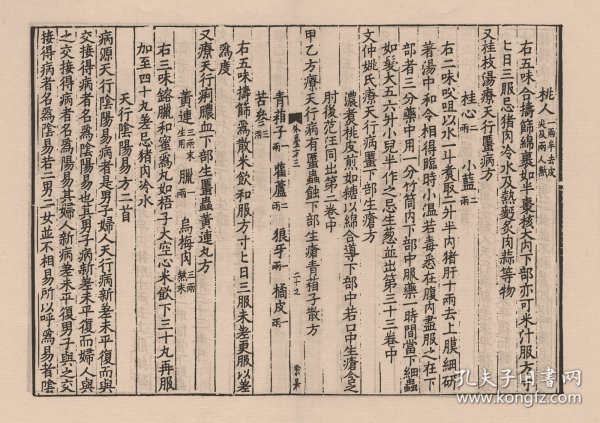 桃人一兩半去皮尖及兩人熬
右五味合擣篩綿裹如半棗核大內下部亦可米汁服方寸
匕日三服忌豬肉冷水及熱麪炙肉蒜等物
又桂枝湯療天行䘌病方
桂心二兩 小藍二兩
右二味㕮咀以水一斗煮取二升半內豬肝十兩去上膜細研
著湯中和令相得臨時小溫若毒悉在腹內盡服之在下
部者三分藥中用一分竹筒內下部中服藥一時間當下細蟲
如髮大五六升小兒半作之忌生蔥並出第三十三卷中
文仲姚氏療天行病䘌下部生瘡方
濃煮桃皮煎如糖以綿合導下部中若口中生瘡含之
肘後范汪同出第二卷中
甲乙方療天行病有䘌蟲蝕下部生瘡青葙子散方
外臺方三 二十九 余真
青葙子一兩 雚蘆四兩 狼牙一兩 橘皮二兩
苦參三兩
右五味擣篩爲散米飲和服方寸匕日三服未差更服以差
爲度
又療天行痢膿血下部生䘌蟲黃連丸方
黃連三兩末生用 臘一兩 烏梅肉三兩熬末
右三味鎔臘和蜜爲丸如梧子大空心米飲下三十丸再服
加至四十丸差忌豬肉冷水
天行陰陽易方二首
病源天行陰陽易病者是男子婦人天行病新差未平復而婦人與
交接得病者名爲陰陽易也其男子病新差未平復而婦人與
之交接得病者名爲陽易其婦人新病差未平復男子與之交
接得病者名爲陰易若二男二女並不相易所以呼爲易者陰
孔夫子旧书网